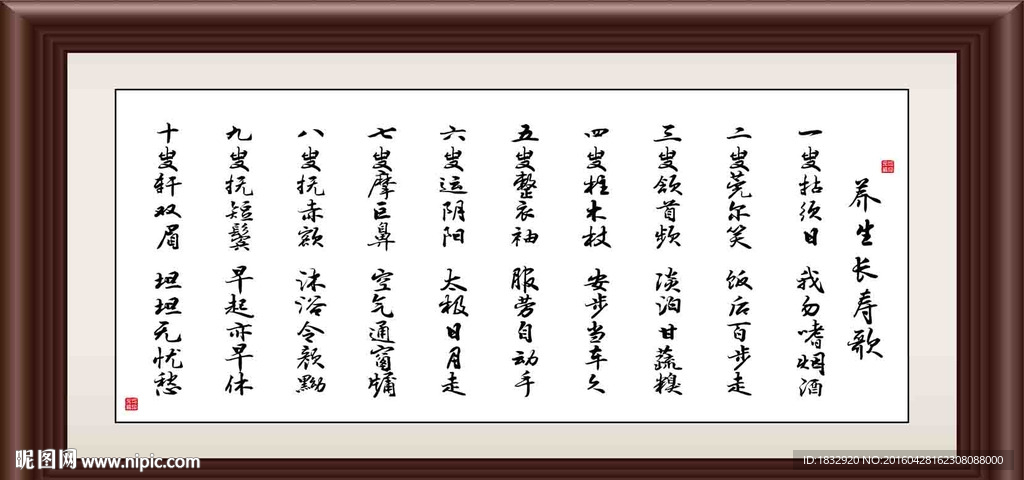 养生长寿歌
一叟拈须曰 我勿嗜烟酒
二叟莞尔笑 饭后百步走
三叟颔首频 淡泊甘蔬糗
四叟柱木杖 安步当车久
五叟整衣袖 服劳自动手
六叟运阴阳 太极日月走
七叟摩巨鼻 空气通窗牖
八叟抚赤颜 沐浴令颜黝
九叟抚短鬓 早起亦早休
十叟轩双眉 坦坦无忧愁
昵图网 www.nipic.com
ID:1832920 NO:20160428162308088000